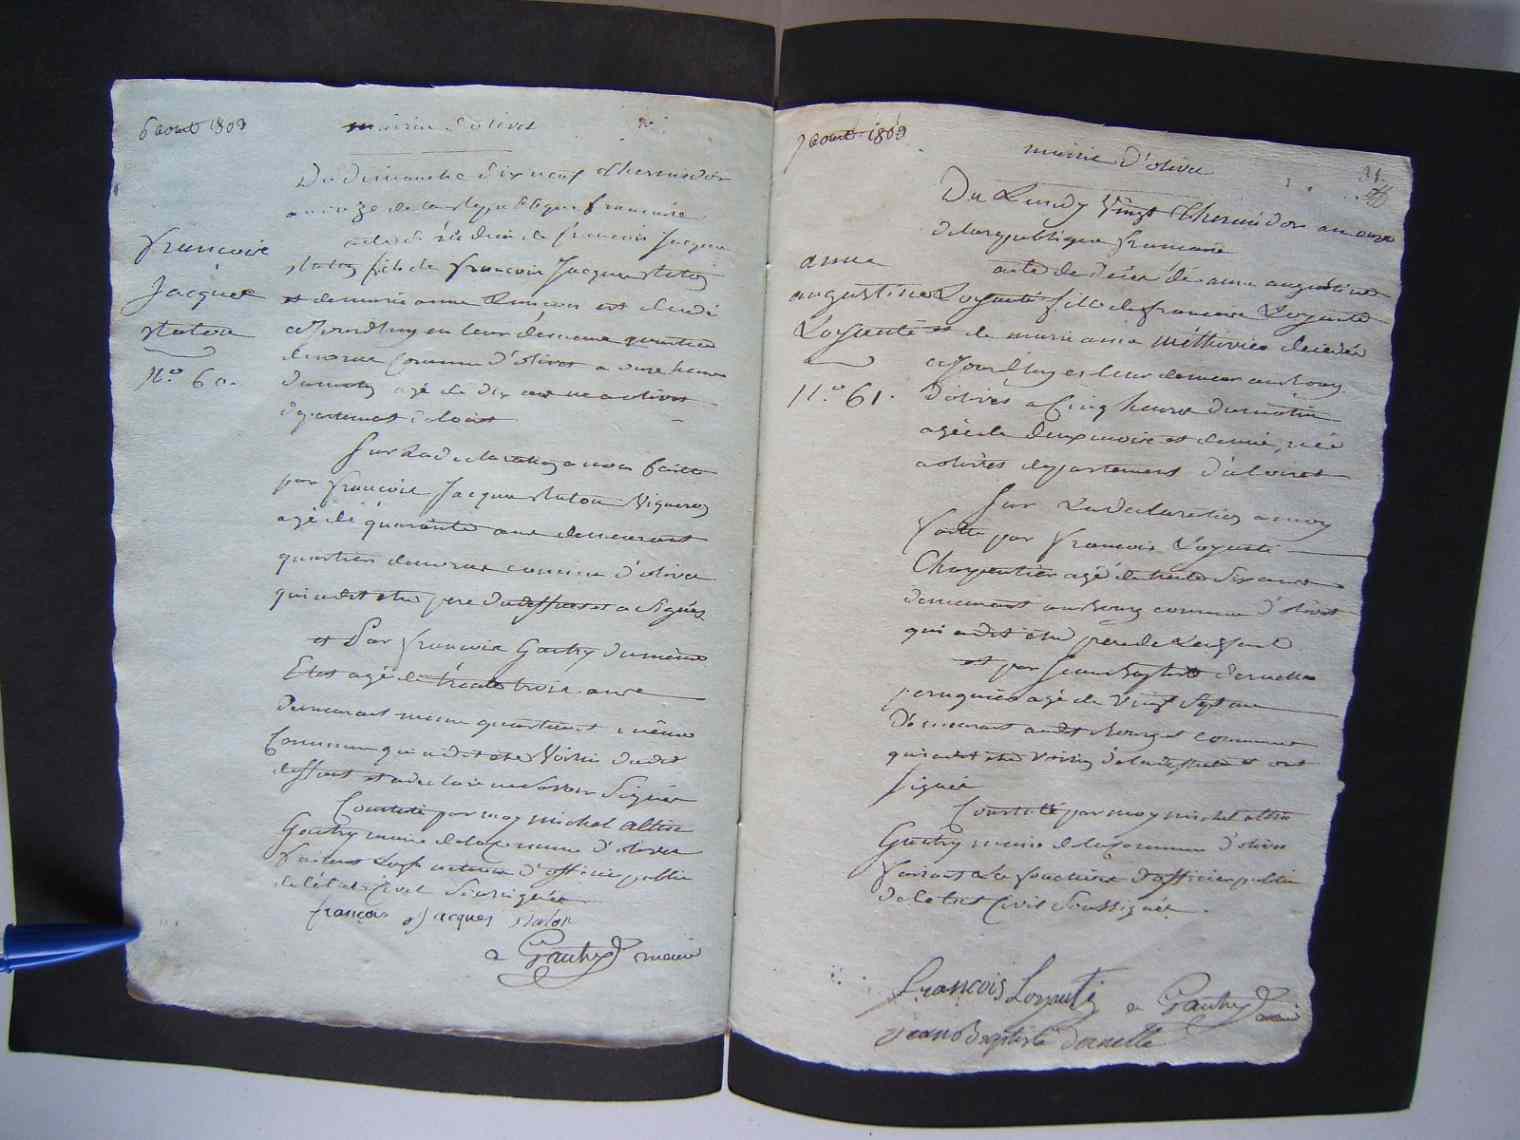 6 aout 1803
mairie d'olivet
Du dimanche dix neuf thermidor
an onze de la Republique francaise
acte de décéde de françois Jacque
francois
Jacque
staton
N.º 60.
staton fils de françois Jacque staton
et de marie anne est decedé
aJourdhuy en leur demeure quartier
commune d'olivet a onze heure
du matin agé de dix an ne a olivet
departement du loiret
Sur La declaration a nous faitte
par françois Jacque staton Vigneron
agé de quarante ans demeurant
quartier commune d'olivet
qui a dit etre pere du deffunt et a Signés
et Par françois Gautry du même
Etat agé de trente trois ans
demeurant meme quartier même
Commune qui a dit etre Voisin dudit
deffunt et a declaré ne Savoir Signér
Constaté par moy michel
Gautry maire de la Commune d'olivet
faisant Les fonctions d'officier public
de l'état Civil Soussignée
françois Jacques staton
Gautry maire
7 aout 1803
mairie d'olivet
31.
Du Lundy Vingt thermidor an onze
de la republique francaise
anne
augustine
Loyauté
N.º 61.
acte de décéé de anne augustine
Loyauté fille de francois Loyauté
et de marie anne méthivier decedée
aJourdhuy en leur demeure au bourg
d'olivet a Cinq heure du matin
agée de deux mois et demie, née
a olivet departement du loiret
Sur La declaration a moy
faitte par francois Loyauté
Charpentier agé de trente Six ans
demeurant au bourg commune d'olivet
qui a dit être pere de L'enfant
et par Jean Baptiste dernelle
peruquier agé de Vingt Sept ans
Demeurant audit bourg et commune
qui a dit etre Voisin de la deffunte et ont
Signée
Constaté par moy michel
Gautry maire de la Commune d'olivet
faisant Les fonctions d'officier public
de letat Civil Soussignée.
françois Loyauté
Gautry maire
jean Baptiste dernelle